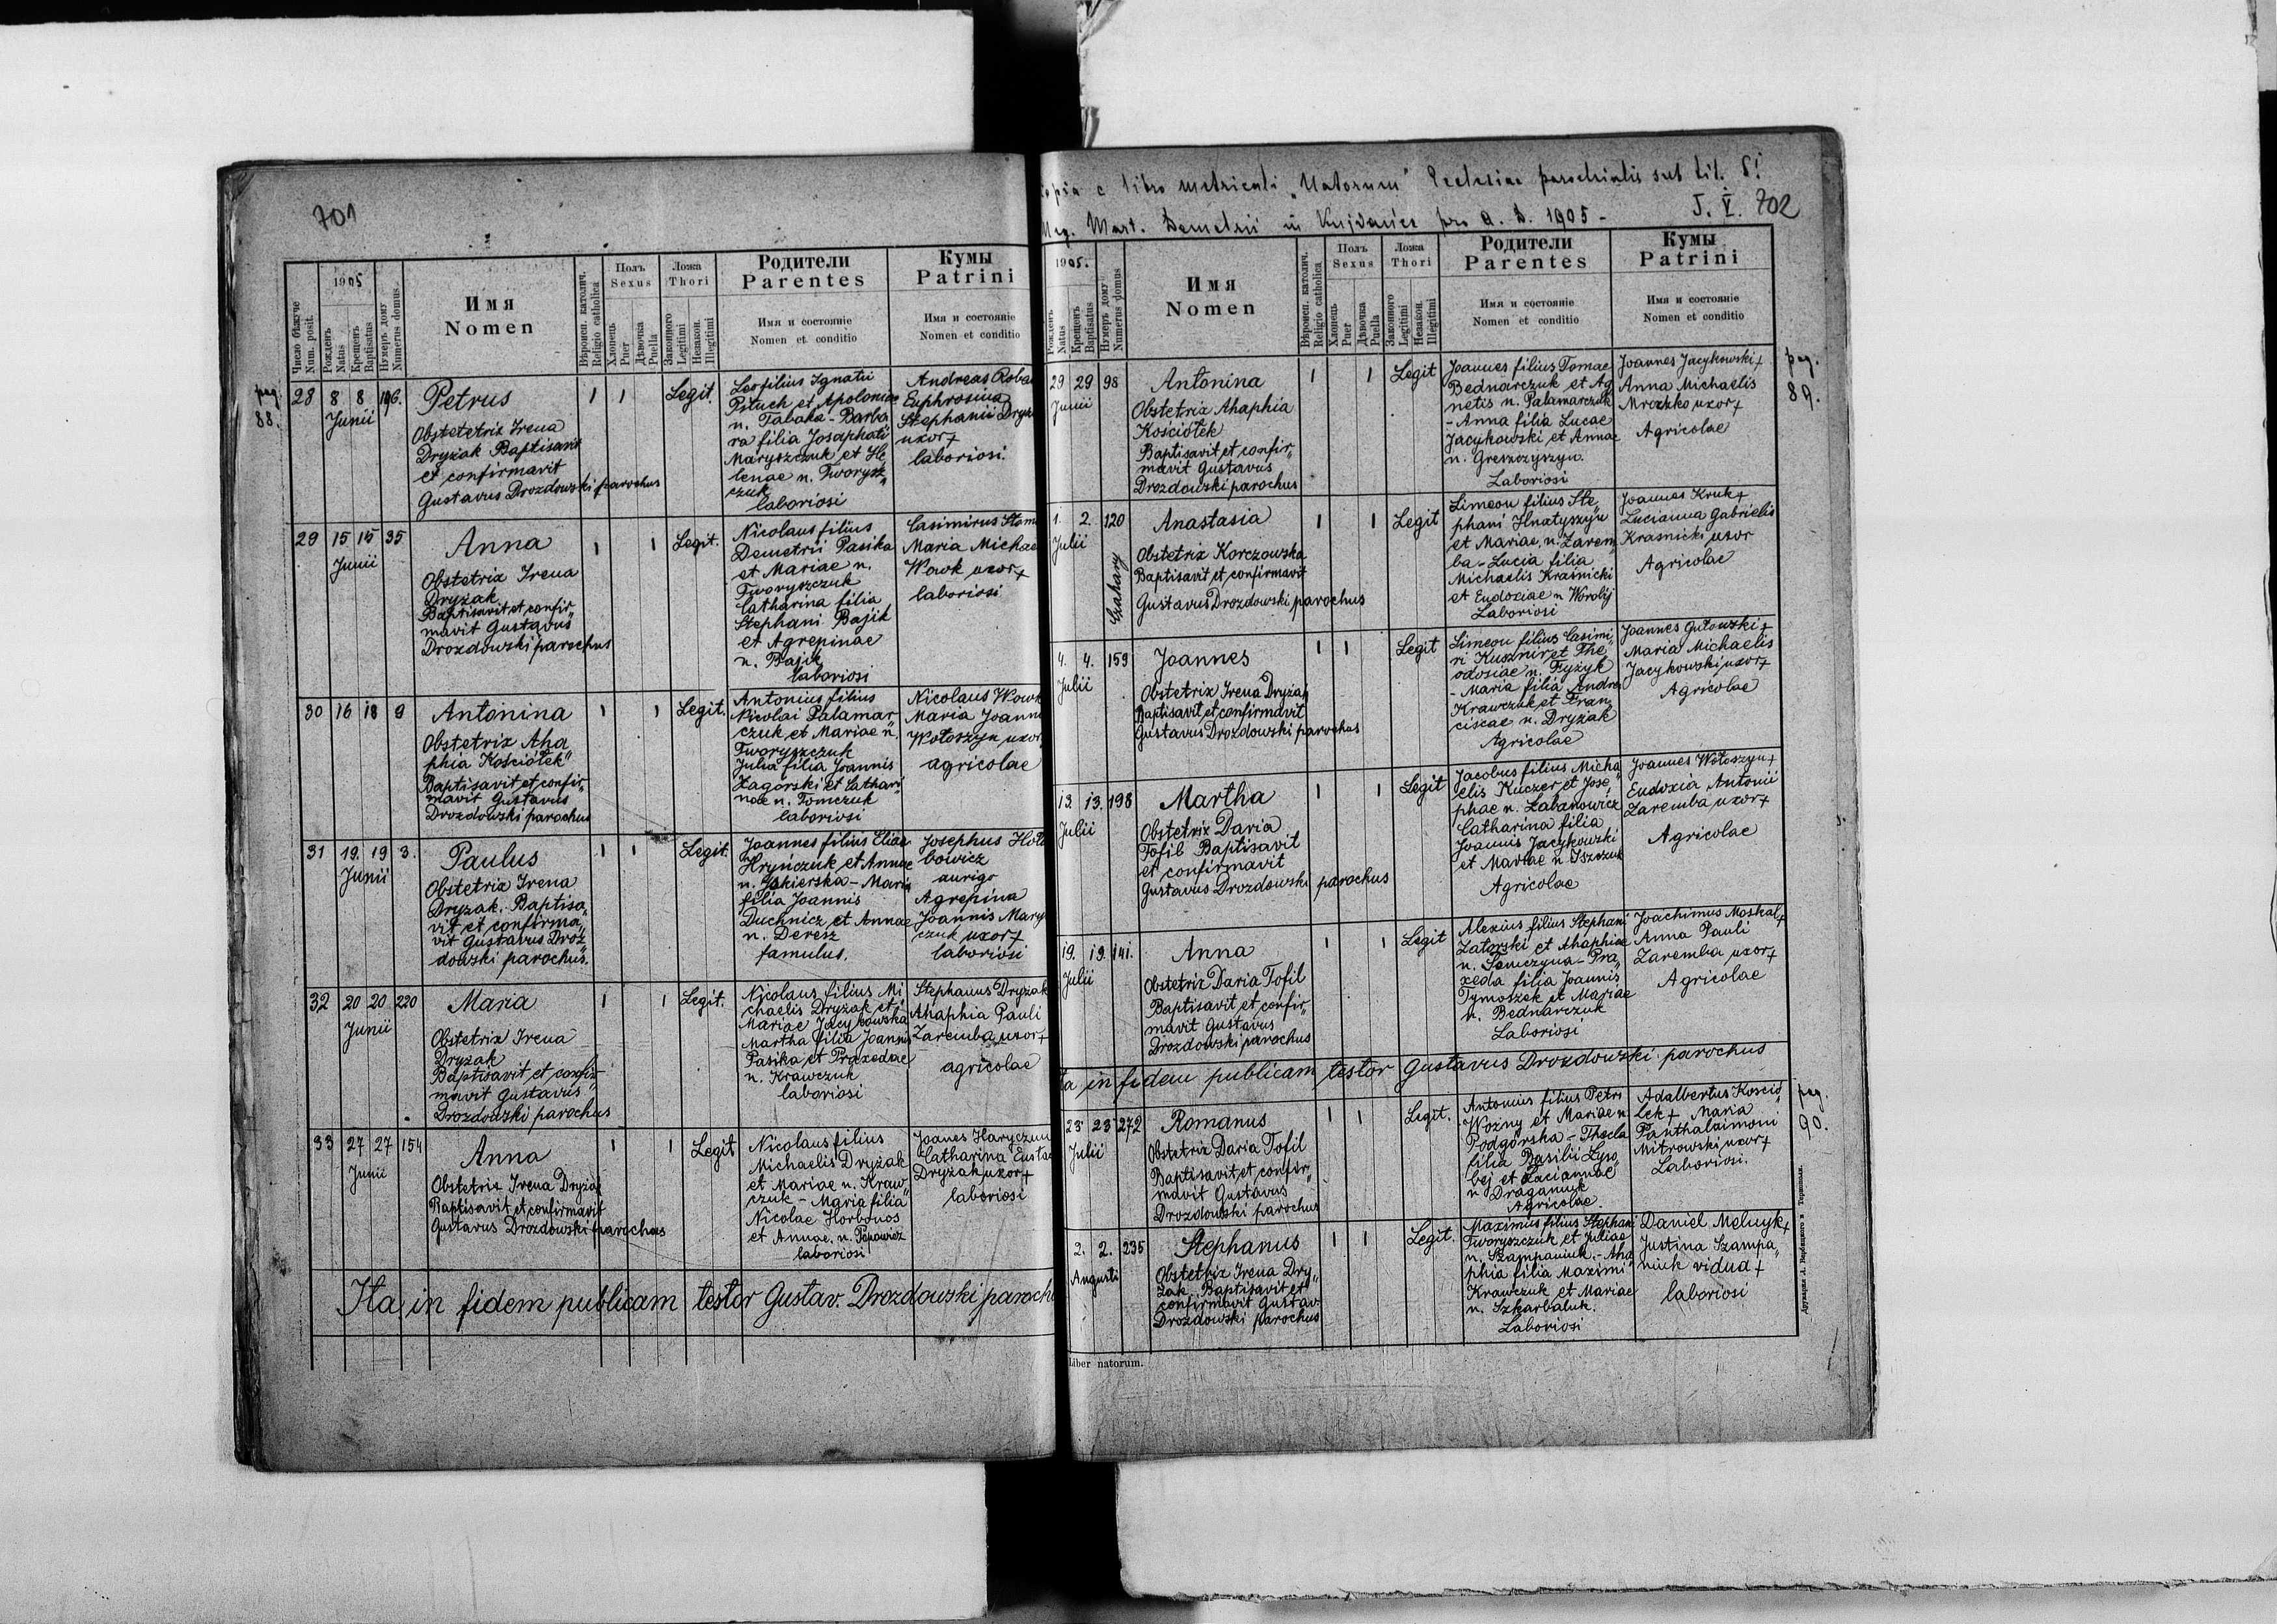 701
1905
Число бѣжуче
Num. posit.
Рожденъ
Natus
Крещенъ
Baptisatus
Нумеръ дому
Numerus domus.
Имя
Nomen
Вѣроисп. католич.
Religio catholica
Полъ
Sexus
Хлопець
Puer
Дѣвочка
Puella
Ложа
Thori
Законного
Legitimi
Незакон.
Illegitimi
Родители
Parentes
Имя и состояніе
Nomen et conditio
Кумы
Patrini
Имя и состояніе
Nomen et conditio
pag.
88.
28 8 8 196. Petrus 1 1 Legit.
Junii
Obstetetrix Irena
Dryzak Baptisavit
et confirmavit
Gustavus Drozdowski parochus
filius Ignatii
Pituch et Apoloniae
n. Tabaka - Barba
ra filia Josaphati
Maryszczuk et He„
lenae n. Tworysz„
czuk
laboriosi
Andreas
Euphrosina
Stephanii
uxor +
laboriosi.
29 15 15 35 Anna 1 1 Legit.
Junii
Obstetrix Irena
Dryzak
Baptisavit et confir„
mavit Gustavus
Drozdowski parochus
Nicolaus filius
Demetrii Pasika
et Mariae n.
Tworyszczuk
Catharina filia
Stephani Bajik
et Agrepinae
n. Bajik
laboriosi
Casimirus
Maria
Wowk uxor +
laboriosi
30 16 18 9 Antonina 1 1 Legit.
Obstetrix Aha
phia Kościółek
Baptisavit et confir„
mavit Gustavus
Drozdowski parochus
Antonius filius
Nicolai Palamar
czuk et Mariae n.
Tworyszczuk
Julia filia Joannis
Zagórski et Cathari
nae n. Tomczuk
laboriosi
Nicolaus Wowk
Maria
Wołoszyn uxor
agricolae
31 19. 19 3. Paulus 1 1 Legit.
Junii
Obstetrix Irena
Dryzak. Baptisa„
vit et confirma„
vit Gustavus Droz„
dowski parochus.
Joannes filius Eliae
Hryńczuk et Annae
n. Iskierska - Maria
filia Joannis
Duchnicz et Annae
n. Deresz
famulus.
Josephus
bowicz
aurigo
Agrepina
Joannis
czuk uxor +
laboriosi
32 20 20 220 Maria 1 1 Legit.
Junii
Obstetrix Irena
Dryzak
Baptisavit et confir
mavit Gustavus
Drozdowski parochus
Nicolaus filius Mi
chaelis Dryzak et
Mariae Jacykowska
Martha filia Joannis
Pasika et Praxedae
n. Krawczuk
laboriosi
Stephanus Dryzak
Ahaphia Pauli
Zaremba uxor +
agricolae
33 27 27 154 Anna 1 1 Legit
Junii
Obstetrix Irena Dryzak
Baptisavit et confirmavit
Gustavus Drozdowski parochus
Nicolaus filius
Michaelis Dryzak
et Mariae n. Kraw„
czuk - Maria filia
Nicolae Horbonos
et Annae, n. Popowicz
laboriosi
Joanes
Catharina
Dryzak uxor +
laboriosi
Ita in fidem publicam testor Gustav. Drozdowski
c libro metricali „Natorum" Ecclesiae parochialis sub tit. S!
Mart. Demetrii in Kujdanics pro a. D. 1905 -
T. V. 702
1905.
Рожденъ
Natus
Крещенъ
Baptisatus
Нумеръ дому
Numerus domus
Имя
Nomen
Вѣроисп. католич.
Religio catholica
Полъ
Sexus
Хлопець
Puer
Дѣвочка
Puella
Ложа
Thori
Законного
Legitimi
Незакон.
Illegitimi
Родители
Parentes
Имя и состояніе
Nomen et conditio
Кумы
Patrini
Имя и состояніе
Nomen et conditio
pag.
89.
29 29 98 Antonina 1 1 Legit
Junii
Obstetrix Ahaphia
Kościółek
Baptisavit et confir„
mavit Gustavus
Drozdowski parochus
Joannes filius Tomae
Bednarczuk et Ag
netis n. Palamarczuk
- Anna filia Lucae
Jacykowski et Annae
n. Greszczyszyn.
Laboriosi
Joannes Jacykowski +
Anna Michaelis
Mroczko uxor +
Agricolae
1. 2. 120 Anastasia 1 1 Legit
Julii
Czahary
Obstetrix Korczowska
Baptisavit et confirmavit
Gustavus Drozdowski parochus
Simeon filius Ste„
phani Hnatyszyn
et Mariae, n. Zarem„
ba - Lucia filia
Michaelis Krasnicki
et Eudoxiae n Worobij
Laboriosi
Joannes Kruk +
Lucianna Gabrielis
Krasnicki uxor
Agricolae
4. 4. 159 Joannes 1 1 Legit
Julii
Obstetrix Irena Dryzak
Baptisavit et confirmavit
Gustavus Drozdowski parochus
Simeon filius Casimi„
ri Kusznir et The„
odosiae n. Fyzyk
- Maria filia Andrei
Krawczuk et Fran„
ciscae n. Dryzak
Agricolae
Joannes Gutowski +
Maria Michaelis
Jacykowski uxor +
Agricolae
13. 13. 198 Martha 1 1 Legit
Julii
Obstetrix Daria
Tofil Baptisavit
et confirmavit
Gustavus Drozdowski parochus
Jacobus filius Micha
elis Kuczer et Jose„
phae n. Labanowicz
Catharina filia
Joannis Jacykowski
et Mariae n. Iszczuk
Agricolae
Joannes Wołoszyn +
Eudoxia Antonii
Zaremba uxor +
Agricolae
19. 19. 141. Anna 1 1 Legit
Julii
Obstetrix Daria Tofil
Baptisavit et confir„
mavit Gustavus
Drozdowski parochus
Alexius filius Stephani
Zatorski et Ahaphiae
n. Tomczyna - Pra„
xeda filia Joannis
Tymoszek et Mariae
n. Bednarczuk
Laboriosi
Joachimus Moskal +
Anna Pauli
Zaremba uxor +
Agricolae
in fidem publicam testor Gustavus Drozdowski parochus
pag.
90.
23 23 272 Romanus 1 1 Legit.
Julii
Obstetrix Daria Tofil
Baptisavit et confir„
mavit Gustavus
Drozdowski parochus
Antonius filius Petri
Woźny et Mariae n.
Podgórska - Thecla
filia Basilii Lyso„
bej et Lucianae
n Draganiuk
Agricolae.
Adalbertus Kosció„
lek + Maria
Panthalaimoni
Mitrowski uxor +
Laboriosi.
2. 2. 235 Stephanus 1 1 Legit.
Augusti
Obstetrix Irena Dry„
zak. Baptisavit et
confirmavit Gustav.
Drozdowski parochus
Maximus filius Stephani
Tworyszczuk et Juliae
n. Szampaniuk. - Aha
phia filia Maximi
Krawczuk et Mariae
n. Szkarbaluk.
Laboriosi
Daniel Melnyk +
Justina Szampa„
niuk vidua +
laboriosi
Liber natorum.